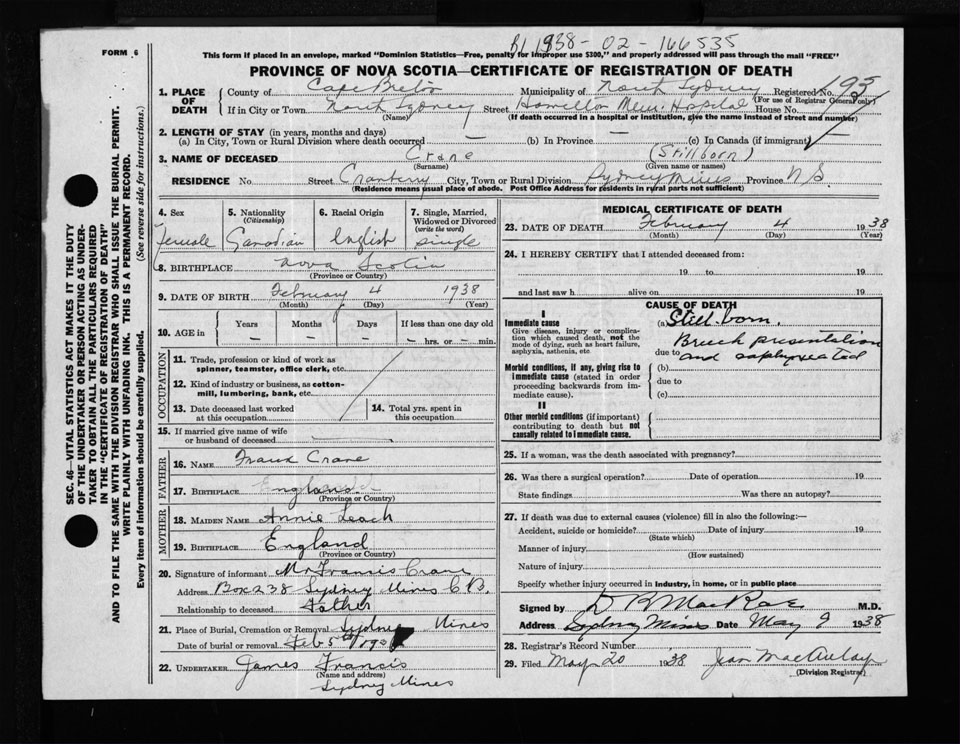 FORM 6
B1 1938-02-166535
This form if placed in an envelope, marked "Dominion Statistics—Free, penalty for improper use $300," and properly addressed will pass through the mail "FREE"
PROVINCE OF NOVA SCOTIA—CERTIFICATE OF REGISTRATION OF DEATH
1. PLACE OF DEATH County of Cape Breton Municipality of North Sydney Registered No. 195
(For use of Registrar General only)
If in City or Town North Sydney Street Hamilton Mem. Hospital House No.
(Name) (If death occurred in a hospital or institution, give the name instead of street and number)
2. LENGTH OF STAY (in years, months and days)
(a) In City, Town or Rural Division where death occurred — (b) In Province — (c) In Canada (if immigrant)
3. NAME OF DECEASED Crane (Stillborn)
(Surname) (Given name or names)
RESIDENCE No. Street Cranberry City, Town or Rural Division Sydney Mines Province N.S.
(Residence means usual place of abode. Post Office Address for residents in rural parts not sufficient)
4. Sex 5. Nationality (Citizenship) 6. Racial Origin 7. Single, Married, Widowed or Divorced (write the word)
Female Canadian English Single
8. BIRTHPLACE Nova Scotia
(Province or Country)
9. DATE OF BIRTH February 4 1938
(Month) (Day) (Year)
10. AGE in Years Months Days If less than one day old
— — — — hrs. or — min.
OCCUPATION
11. Trade, profession or kind of work as spinner, teamster, office clerk, etc.
12. Kind of industry or business, as cotton-mill, lumbering, bank, etc.
13. Date deceased last worked at this occupation
14. Total yrs. spent in this occupation
15. If married give name of wife or husband of deceased
FATHER
16. NAME Frank Crane
17. BIRTHPLACE England
(Province or Country)
MOTHER
18. MAIDEN NAME Annie Leach
19. BIRTHPLACE England
(Province or Country)
20. Signature of informant Mr Francis Crane
Address Box 238 Sydney Mines C.B.
Relationship to deceased Father
21. Place of Burial, Cremation or Removal Sydney Mines
Date of burial or removal Feb 5th
22. UNDERTAKER James Francis
(Name and address)
Sydney Mines
MEDICAL CERTIFICATE OF DEATH
23. DATE OF DEATH February 4 1938
(Month) (Day) (Year)
24. I HEREBY CERTIFY that I attended deceased from:
19 to 19
and last saw h alive on 19
CAUSE OF DEATH
I
Immediate cause (a) Still born.
Give disease, injury or complication which caused death, not the mode of dying, such as heart failure, asphyxia, asthenia, etc
due to Breech presentation
and
Morbid conditions, if any, giving rise to immediate cause (stated in order proceeding backwards from immediate cause).
(b)
due to
(c)
II
Other morbid conditions (if important) contributing to death but not causally related to immediate cause.
25. If a woman, was the death associated with pregnancy?
26. Was there a surgical operation? Date of operation 19
State findings Was there an autopsy?
27. If death was due to external causes (violence) fill in also the following:—
Accident, suicide or homicide? Date of injury 19
(State which)
Manner of injury
(How sustained)
Nature of injury
Specify whether injury occurred in industry, in home, or in public place
Signed by D R MacRae M.D.
Address Sydney Mines Date May 9 1938
28. Registrar's Record Number
29. Filed May 20 1938 Jean MacAulay
(Division Registrar)
SEC. 46—VITAL STATISTICS ACT MAKES IT THE DUTY
OF THE UNDERTAKER OR PERSON ACTING AS UNDER-
TAKER TO OBTAIN ALL THE PARTICULARS REQUIRED
IN THE "CERTIFICATE OF REGISTRATION OF DEATH"
AND TO FILE THE SAME WITH THE DIVISION REGISTRAR WHO SHALL ISSUE THE BURIAL PERMIT.
WRITE PLAINLY WITH UNFADING INK. THIS IS A PERMANENT RECORD.
Every item of information should be carefully supplied. (See reverse side for instructions.)